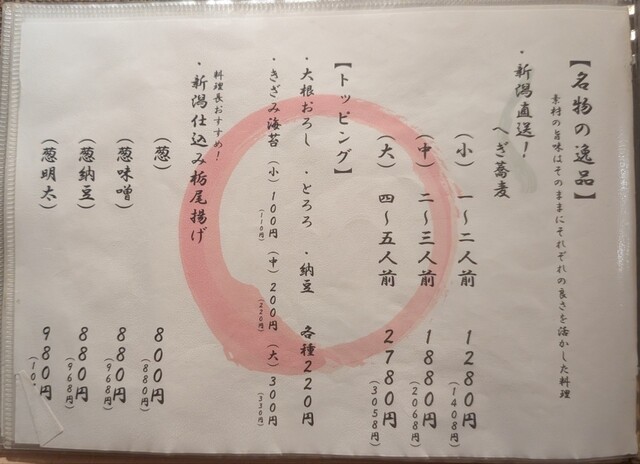 【名物の逸品】
素材の旨味はそのままにそれぞれの良さを活かした料理
・新潟直送！
へぎ蕎麦
（小）一～二人前 1280円
（1408円）
（中）二～三人前 1880円
（2068円）
（大）四～五人前 2780円
（3058円）
【トッピング】
・大根おろし ・とろろ ・納豆 各種220円
・きざみ海苔（小）100円（中）200円（大）300円
（110円）（220円）（330円）
料理長おすすめ！
・新潟仕込み栃尾揚げ
（葱） 800円
（880円）
（葱味噌） 880円
（968円）
（葱納豆） 880円
（968円）
（葱明太） 980円
（10